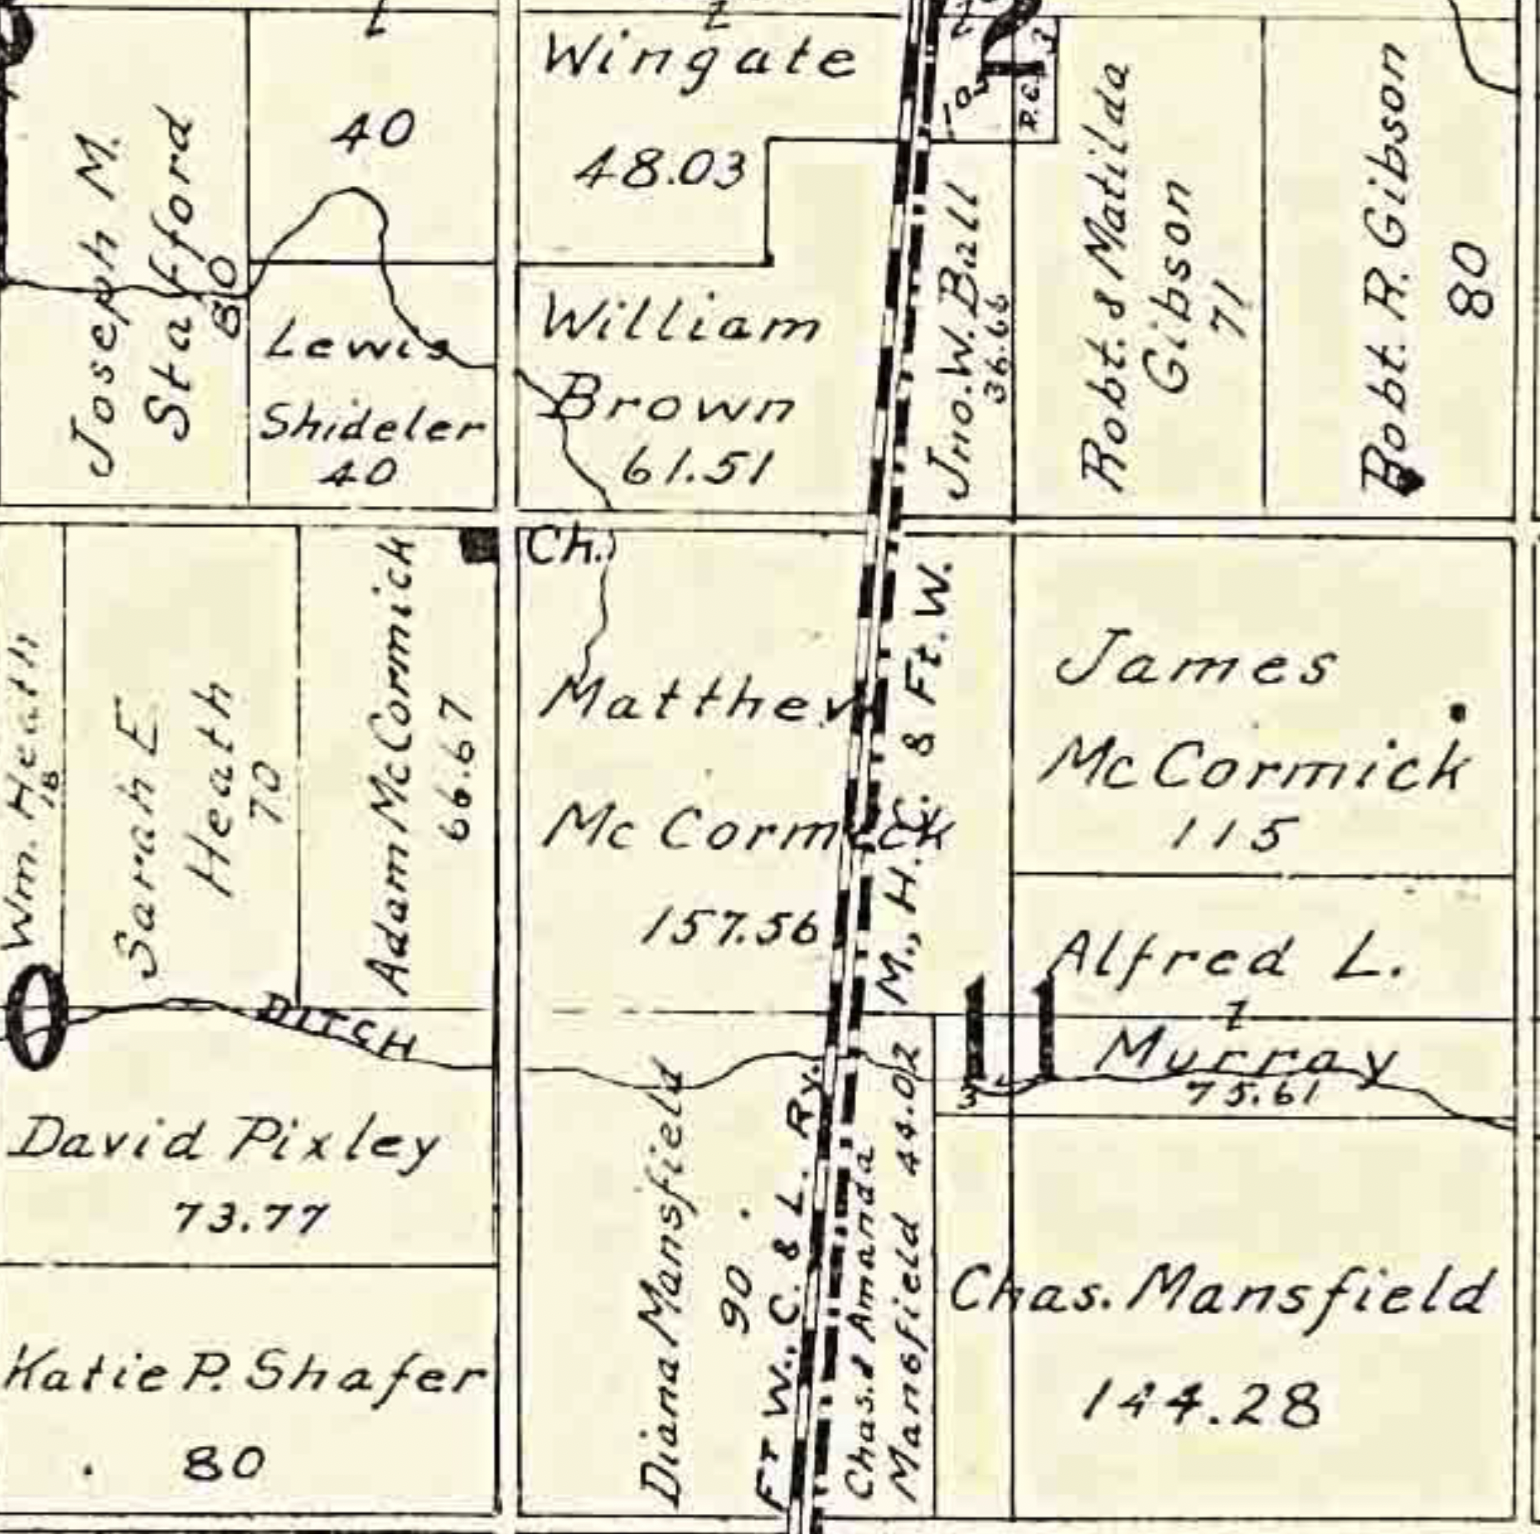 Wingate
48.03
40
Joseph M.
Stafford
80
Lewis
Shideler
40
William
Brown
61.51
2
10
P.C.
3
Jno. W. Ball
36.66
Robt. & Matilda
Gibson
71
Robt. R. Gibson
80
Wm. Heath
18
Sarah E
Heath
70
Adam McCormick
66.67
Ch.
Matthew
McCormick
157.56
M., H. C. & Ft. W.
James
McCormick
115
Alfred L.
Murray
75.61
11
3
0
DITCH
David Pixley
73.77
Katie P. Shafer
80
Diana Mansfield
90
Ft W., C. & L. Ry.
Chas. & Amanda
Mansfield 44.02
Chas. Mansfield
144.28